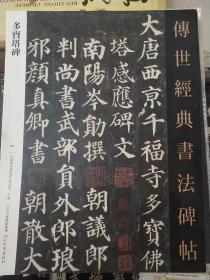 傳世經典書法碑帖
多寶塔碑
大唐西京千福寺多寶佛
塔感應碑文
南陽岑勛撰 朝議郎
判尚書武部員外郎琅
邪顏真卿書 朝散大